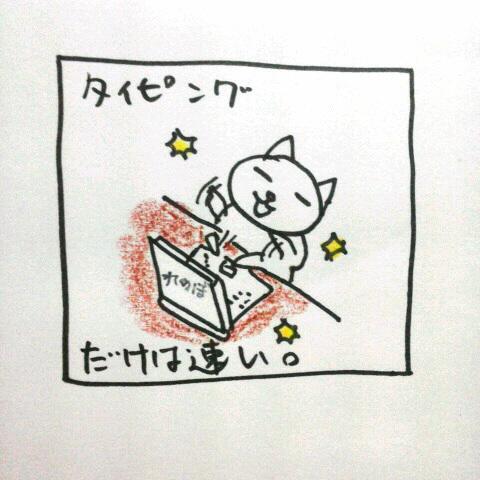 タイピング
れのぼ
だけは速い。